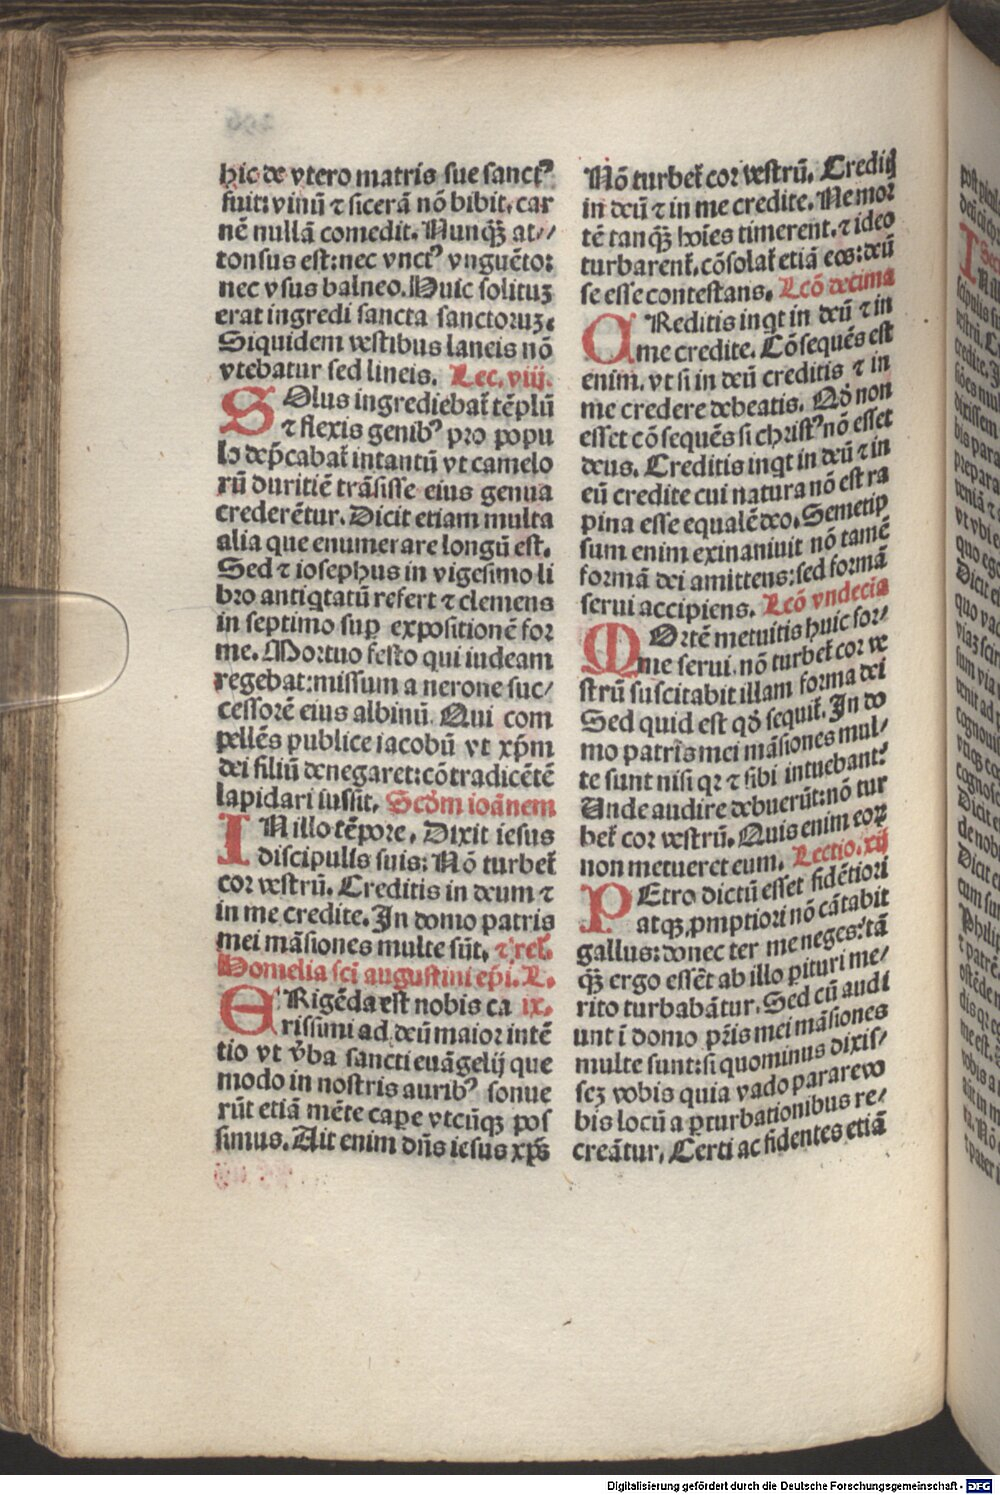 hic de vtero matris sue sanctꝰ
fuit: vinū ⁊ sicerā nō bibit. car
nē nullā comedit. Nunq̄ꝫ at//
tonsus est: nec vnctꝰ vnguēto:
nec vsus balneo. Huic solituꝫ
erat ingredi sancta sanctoruꝫ.
Siquidem vestibus laneis nō
vtebatur sed lineis. Lec. viij.
SOlus ingrediebat̄ tēplū
⁊ flexis genibꝰ pro popu
lo dep̄cabat̄ intantū vt camelo
rū duritiē trāsisse eius genua
crederētur. Dicit etiam multa
alia que enumerare longū est.
Sed ⁊ iosephus in vigesimo li
bro antiqtatū refert ⁊ clemens
in septimo suꝑ expositionē for
me. Mortuo festo qui iudeam
regebat: missum a nerone suc/
cessorē eius albinū. Qui com
pellēs publice iacobū vt xp̄m
dei filiū denegaret: cōtradicētē
lapidari iussit. Scḋm ioānem
IN illo tēpore. Dixit iesus
discipulis suis: Nō turbet̄
cor vestrū. Creditis in deum ⁊
in me credite. In domo patris
mei māsiones multe sūt. ⁊ rel̄.
Homelia sci augustini ep̄i. L.
ERigēda est nobis ca ix.
rissimi ad deū maior intē
tio vt v̄ba sancti euāgelij que
modo in nostris auribꝰ sonue
rūt etiā mēte caꝑe vtcūqꝫ pos
simus. Ait enim dn̄s iesus xp̄s
Nō turbet̄ cor vestrū. Creditis
in deū ⁊ in me credite. Ne mor
tē tanq̄ꝫ hoīes timerent. ⁊ ideo
turbarent̄. cōsolat̄ etiā eos: deū
se esse contestans. Lcō decima
CReditis inqt in deū ⁊ in
me credite. Cōsequēs est
enim. vt si in deū creditis ⁊ in
me credere debeatis. Qḋ non
esset cōsequēs si christꝰ nō esset
deus. Creditis inqt in deū ⁊ in
eū credite cui natura nō est ra
pina esse equalē deo. Semetip
sum enim exinaniuit nō tamē
formā dei amittens: sed formā
serui accipiens. Lcō vndecia
MOrtē metuitis huic for/
me serui. nō turbet̄ cor ve
strū suscitabit illam forma dei
Sed quid est qḋ sequit̄. In do
mo patris mei māsiones mul/
te sunt nisi qꝛ ⁊ sibi intuebant:
Unde audire debuerūt: nō tur
bet̄ cor vestrū. Quis enim eoꝝ
non metueret eum. Lectio. xij
PEtro dictū esset fidētiori
atqꝫ ꝓmptiori nō cātabit
gallus: donec ter me neges: tā
q̄ꝫ ergo essēt ab illo ꝑituri me/
rito turbabātur. Sed cū audi
unt ī domo pr̄is mei māsiones
multe sunt: si quominus dixis/
seꝫ vobis quia vado parare vo
bis locū a ꝑturbationibus re/
creātur. Certi ac fidentes etiā
Digitalisierung gefördert durch die Deutsche Forschungsgemeinschaft - DFG